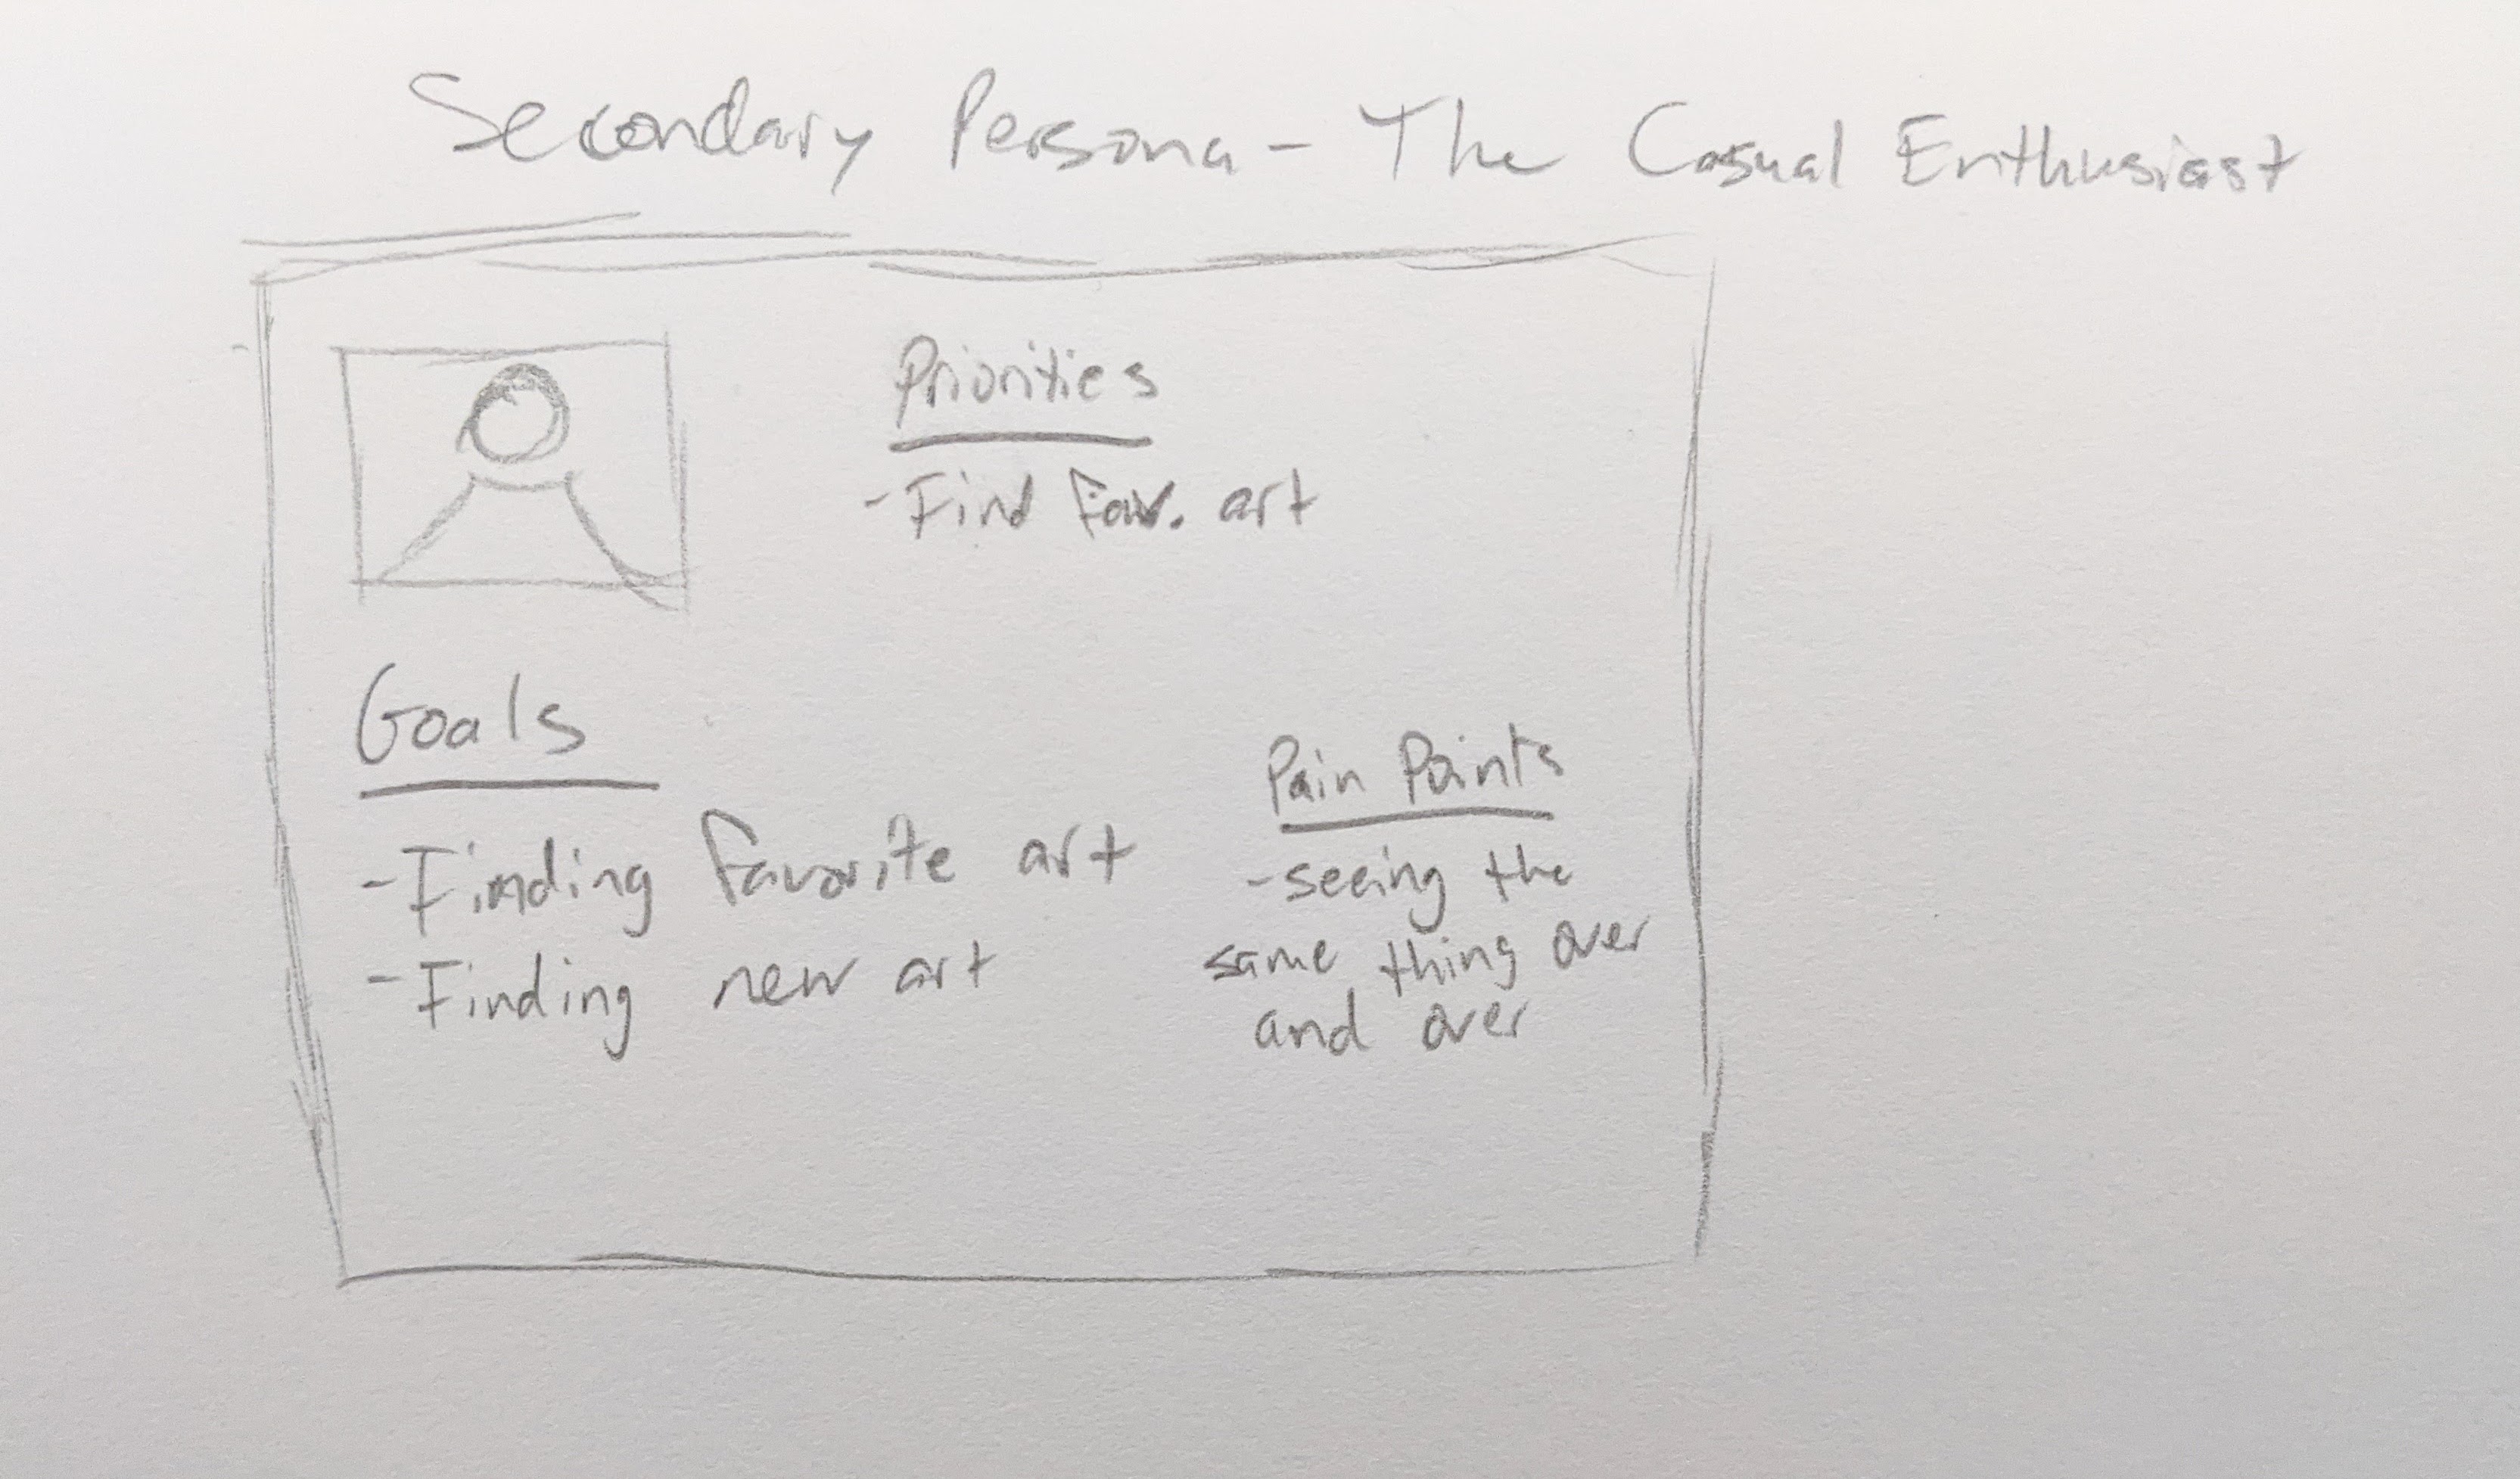 Secondary Persona - The Casual Enthusiast
Priorities
- Find Fav. art
Goals
- Finding favorite art
- Finding new art
Pain Points
- seeing the
same thing over
and over